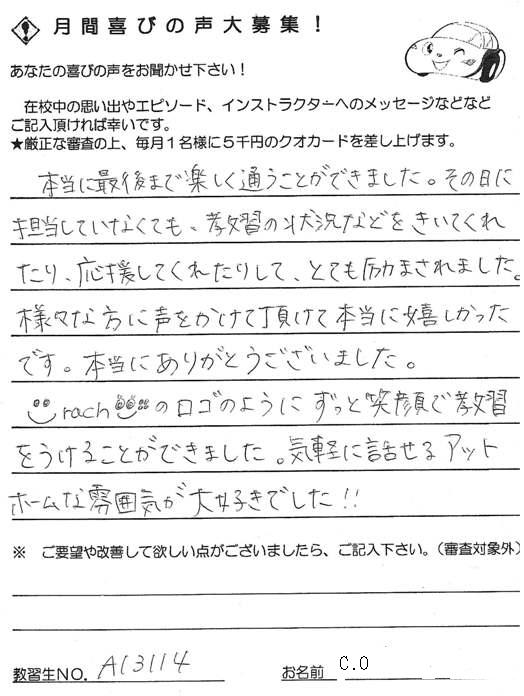 月間喜びの声大募集！
あなたの喜びの声をお聞かせ下さい！
在校中の思い出やエピソード、インストラクターへのメッセージなどなど
ご記入頂ければ幸いです。
★厳正な審査の上、毎月１名様に５千円のクオカードを差し上げます。
本当に最後まで楽しく通うことができました。その日に
担当していなくても、教習の状況などをきいてくれ
たり、応援してくれたりして、とても励まされました。
様々な方に声をかけて頂けて本当に嬉しかった
です。本当にありがとうございました。
rachのロゴのようにずっと笑顔で教習
をうけることができました。気軽に話せるアット
ホームな雰囲気が大好きでした!!
※ ご要望や改善して欲しい点がございましたら、ご記入下さい。（審査対象外）
教習生NO. A13114 お名前 C.O